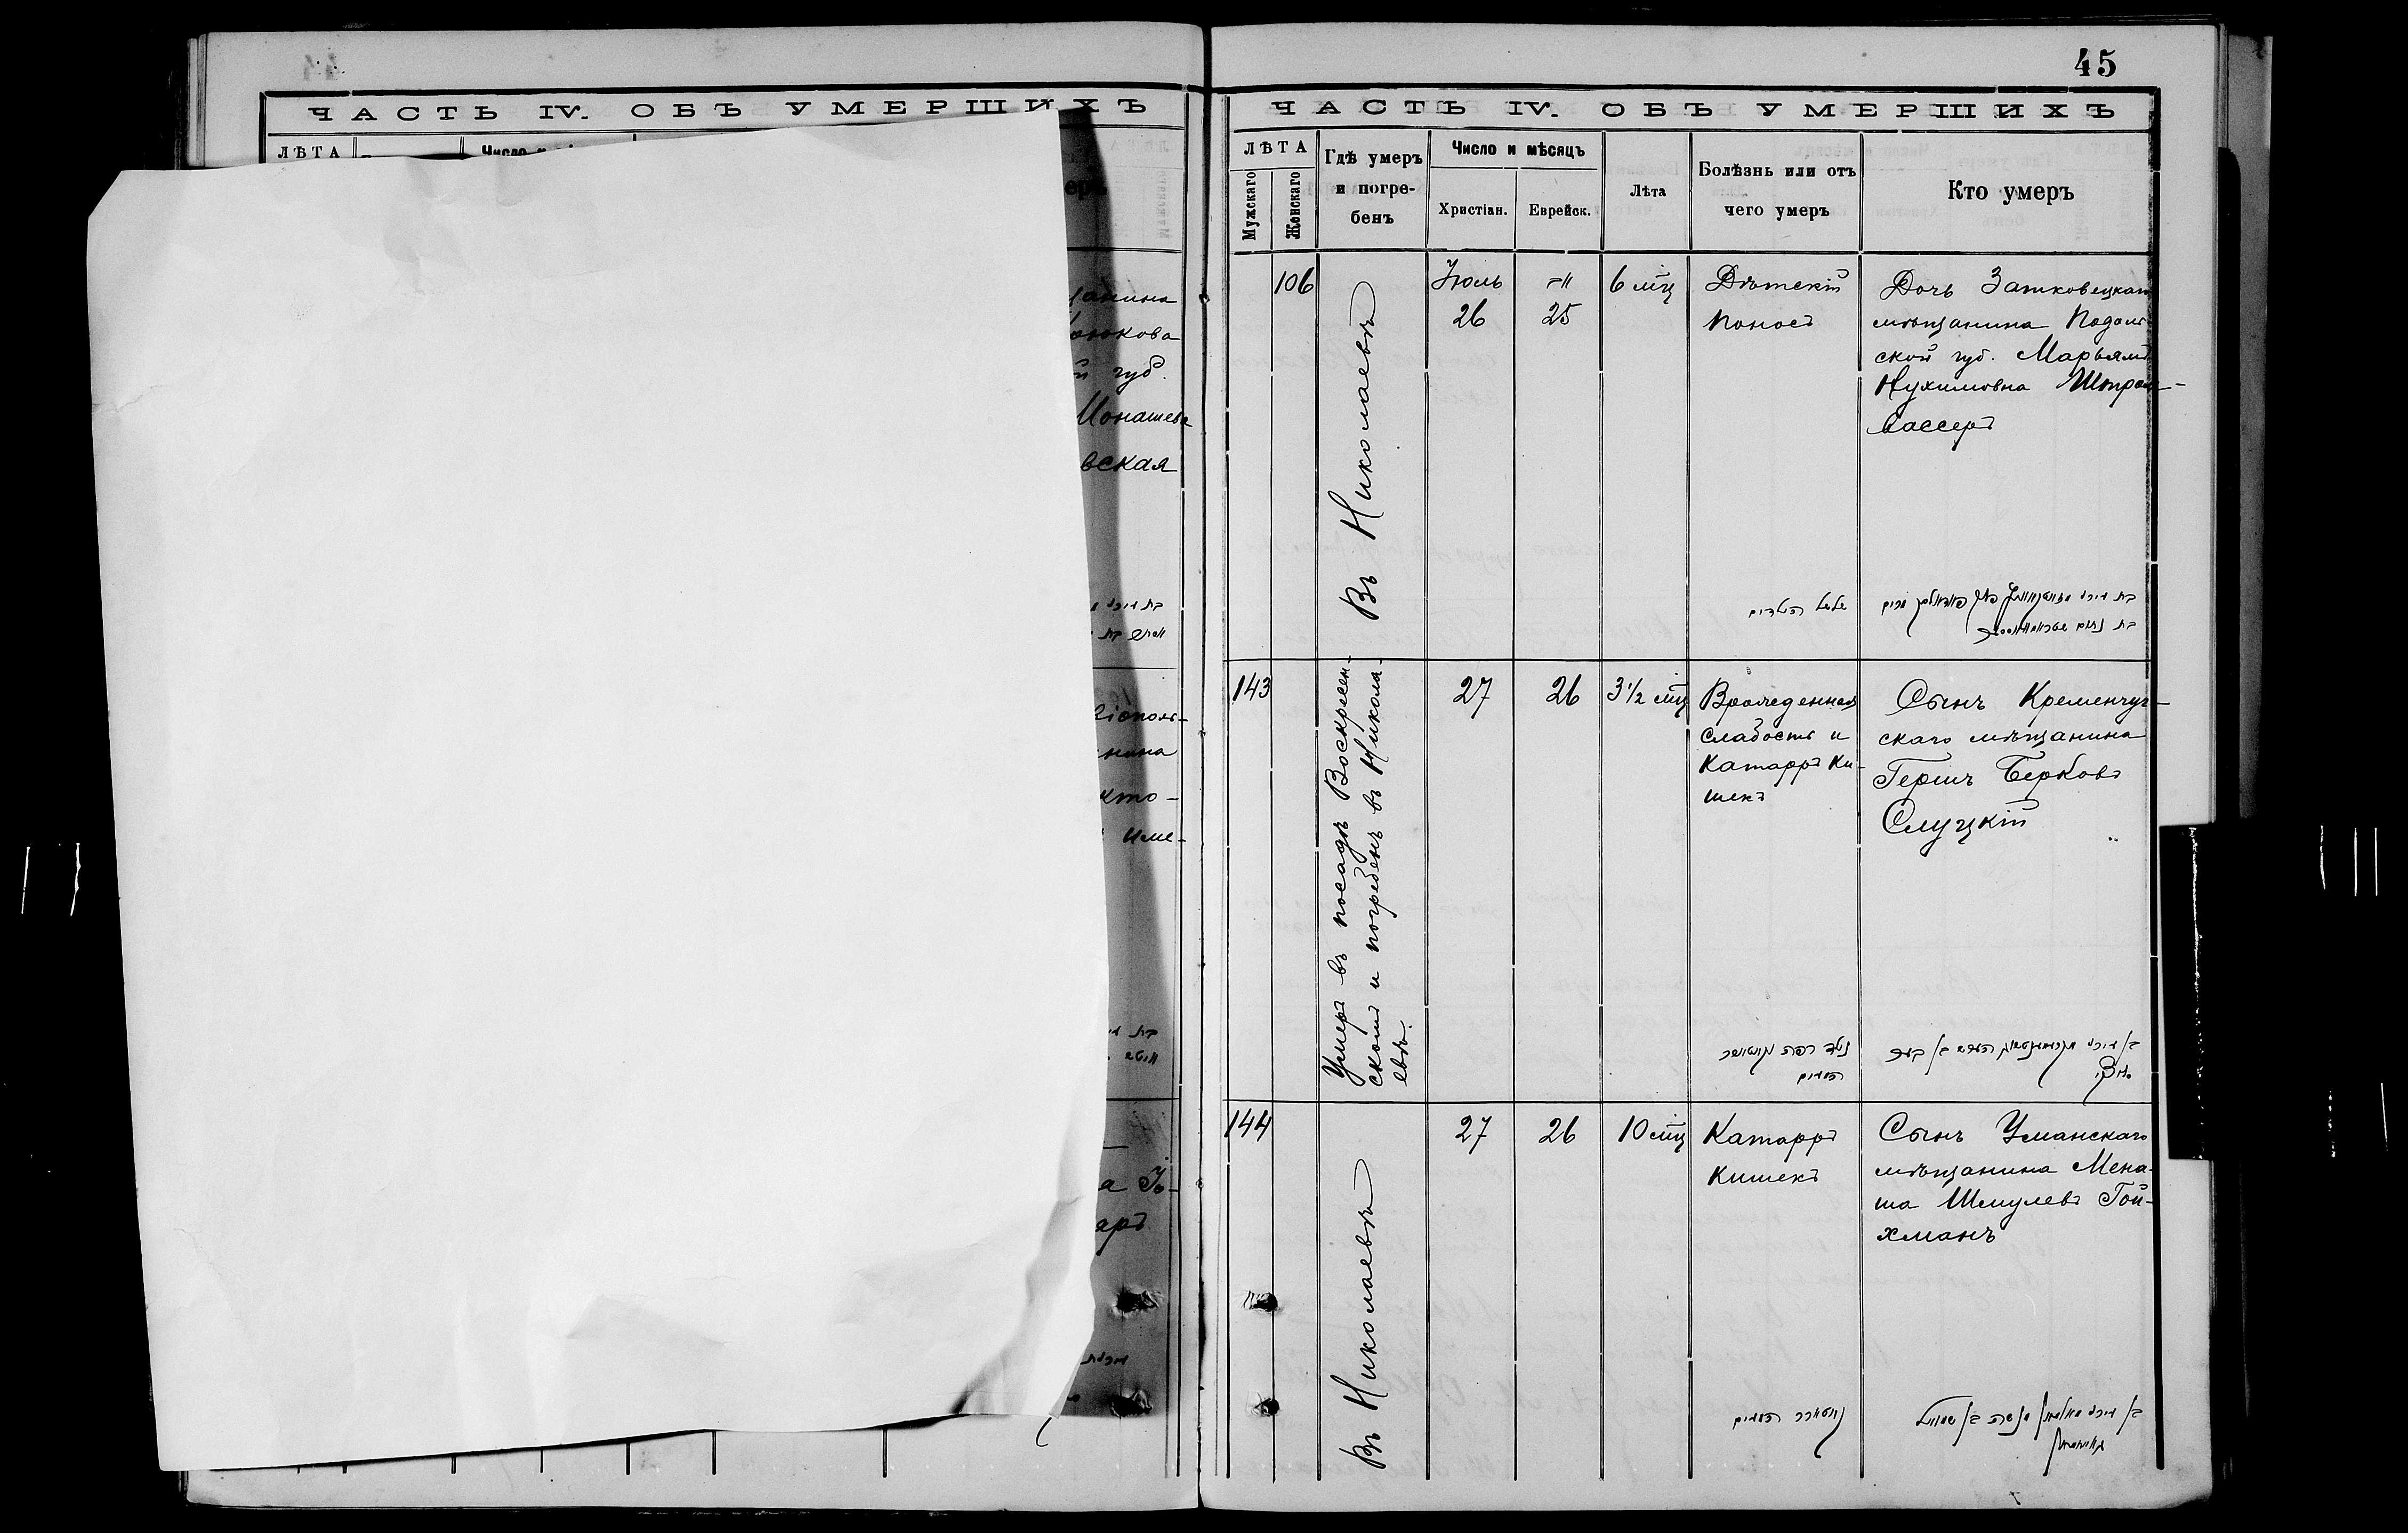 45
ЧАСТЬ IV. ОБЪ УМЕРШИХЪ
ЛѢТА
щанина
рюкова
й губ.
Монашева
вская
нина
кто-
Име-
аръ
ЧАСТЬ IV. ОБЪ УМЕРШИХЪ
ЛѢТА
Мужскаго
Женскаго
Гдѣ умеръ
и погре-
бенъ
Число и мѣсяцъ
Христіан.
Еврейск.
Лѣта
Болѣзнь или отъ
чего умеръ
Кто умеръ
106
Въ Николаевѣ
Іюль
26
25
6 мц
Дѣтскій
поносъ
Дочь Затковецкаго
мѣщанина Подоль-
ской губ. Марьямъ
Нухимовна Шпрах-
вассеръ
שלשול הילדים
143
Умеръ въ посадѣ Воскресен-
скомъ и погребенъ въ Никола-
евѣ.
27
26
3 1/2 мц
Врожденная
слабость и
Катарръ Ки-
шекъ
Сынъ Кременчуг-
скаго мѣщанина
Гершъ Берковъ
Слуцкій
144
Въ Николаевѣ
27
26
10 мц
Катарръ
Кишекъ
Сынъ Уманскаго
мѣщанина Мена-
ша Шмулевъ Гой-
хманъ